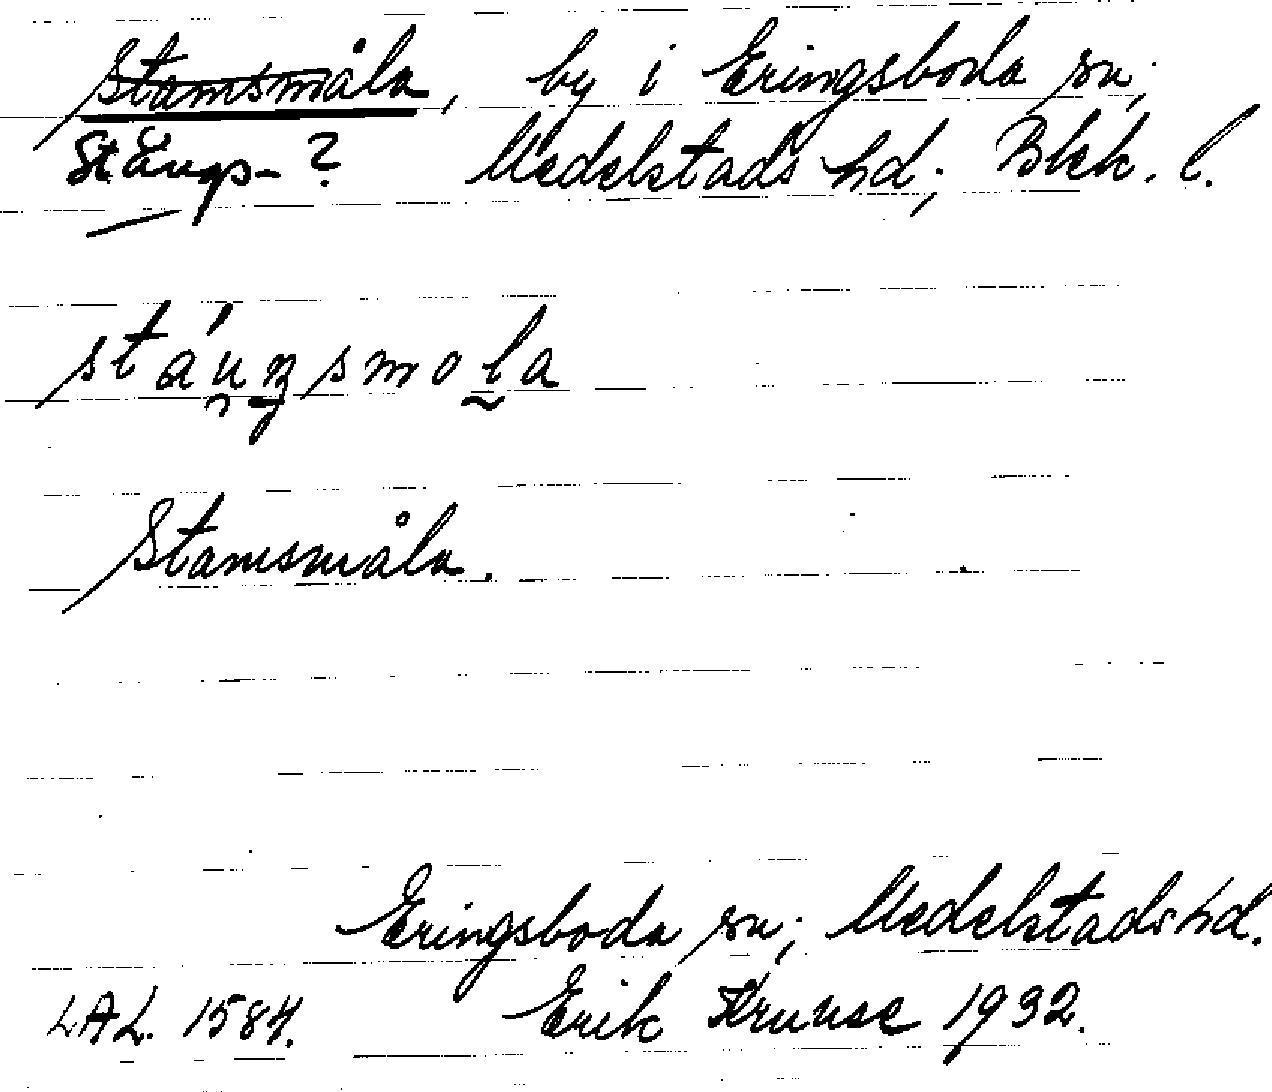 Stamsmåla, by i Eringsboda sn;
Stångs-? Medelstads hd; Blek. l.
Stamsmåla.
Eringsboda sn; Medelstads hd.
LAL. 1584. Erik Kruuse 1932.